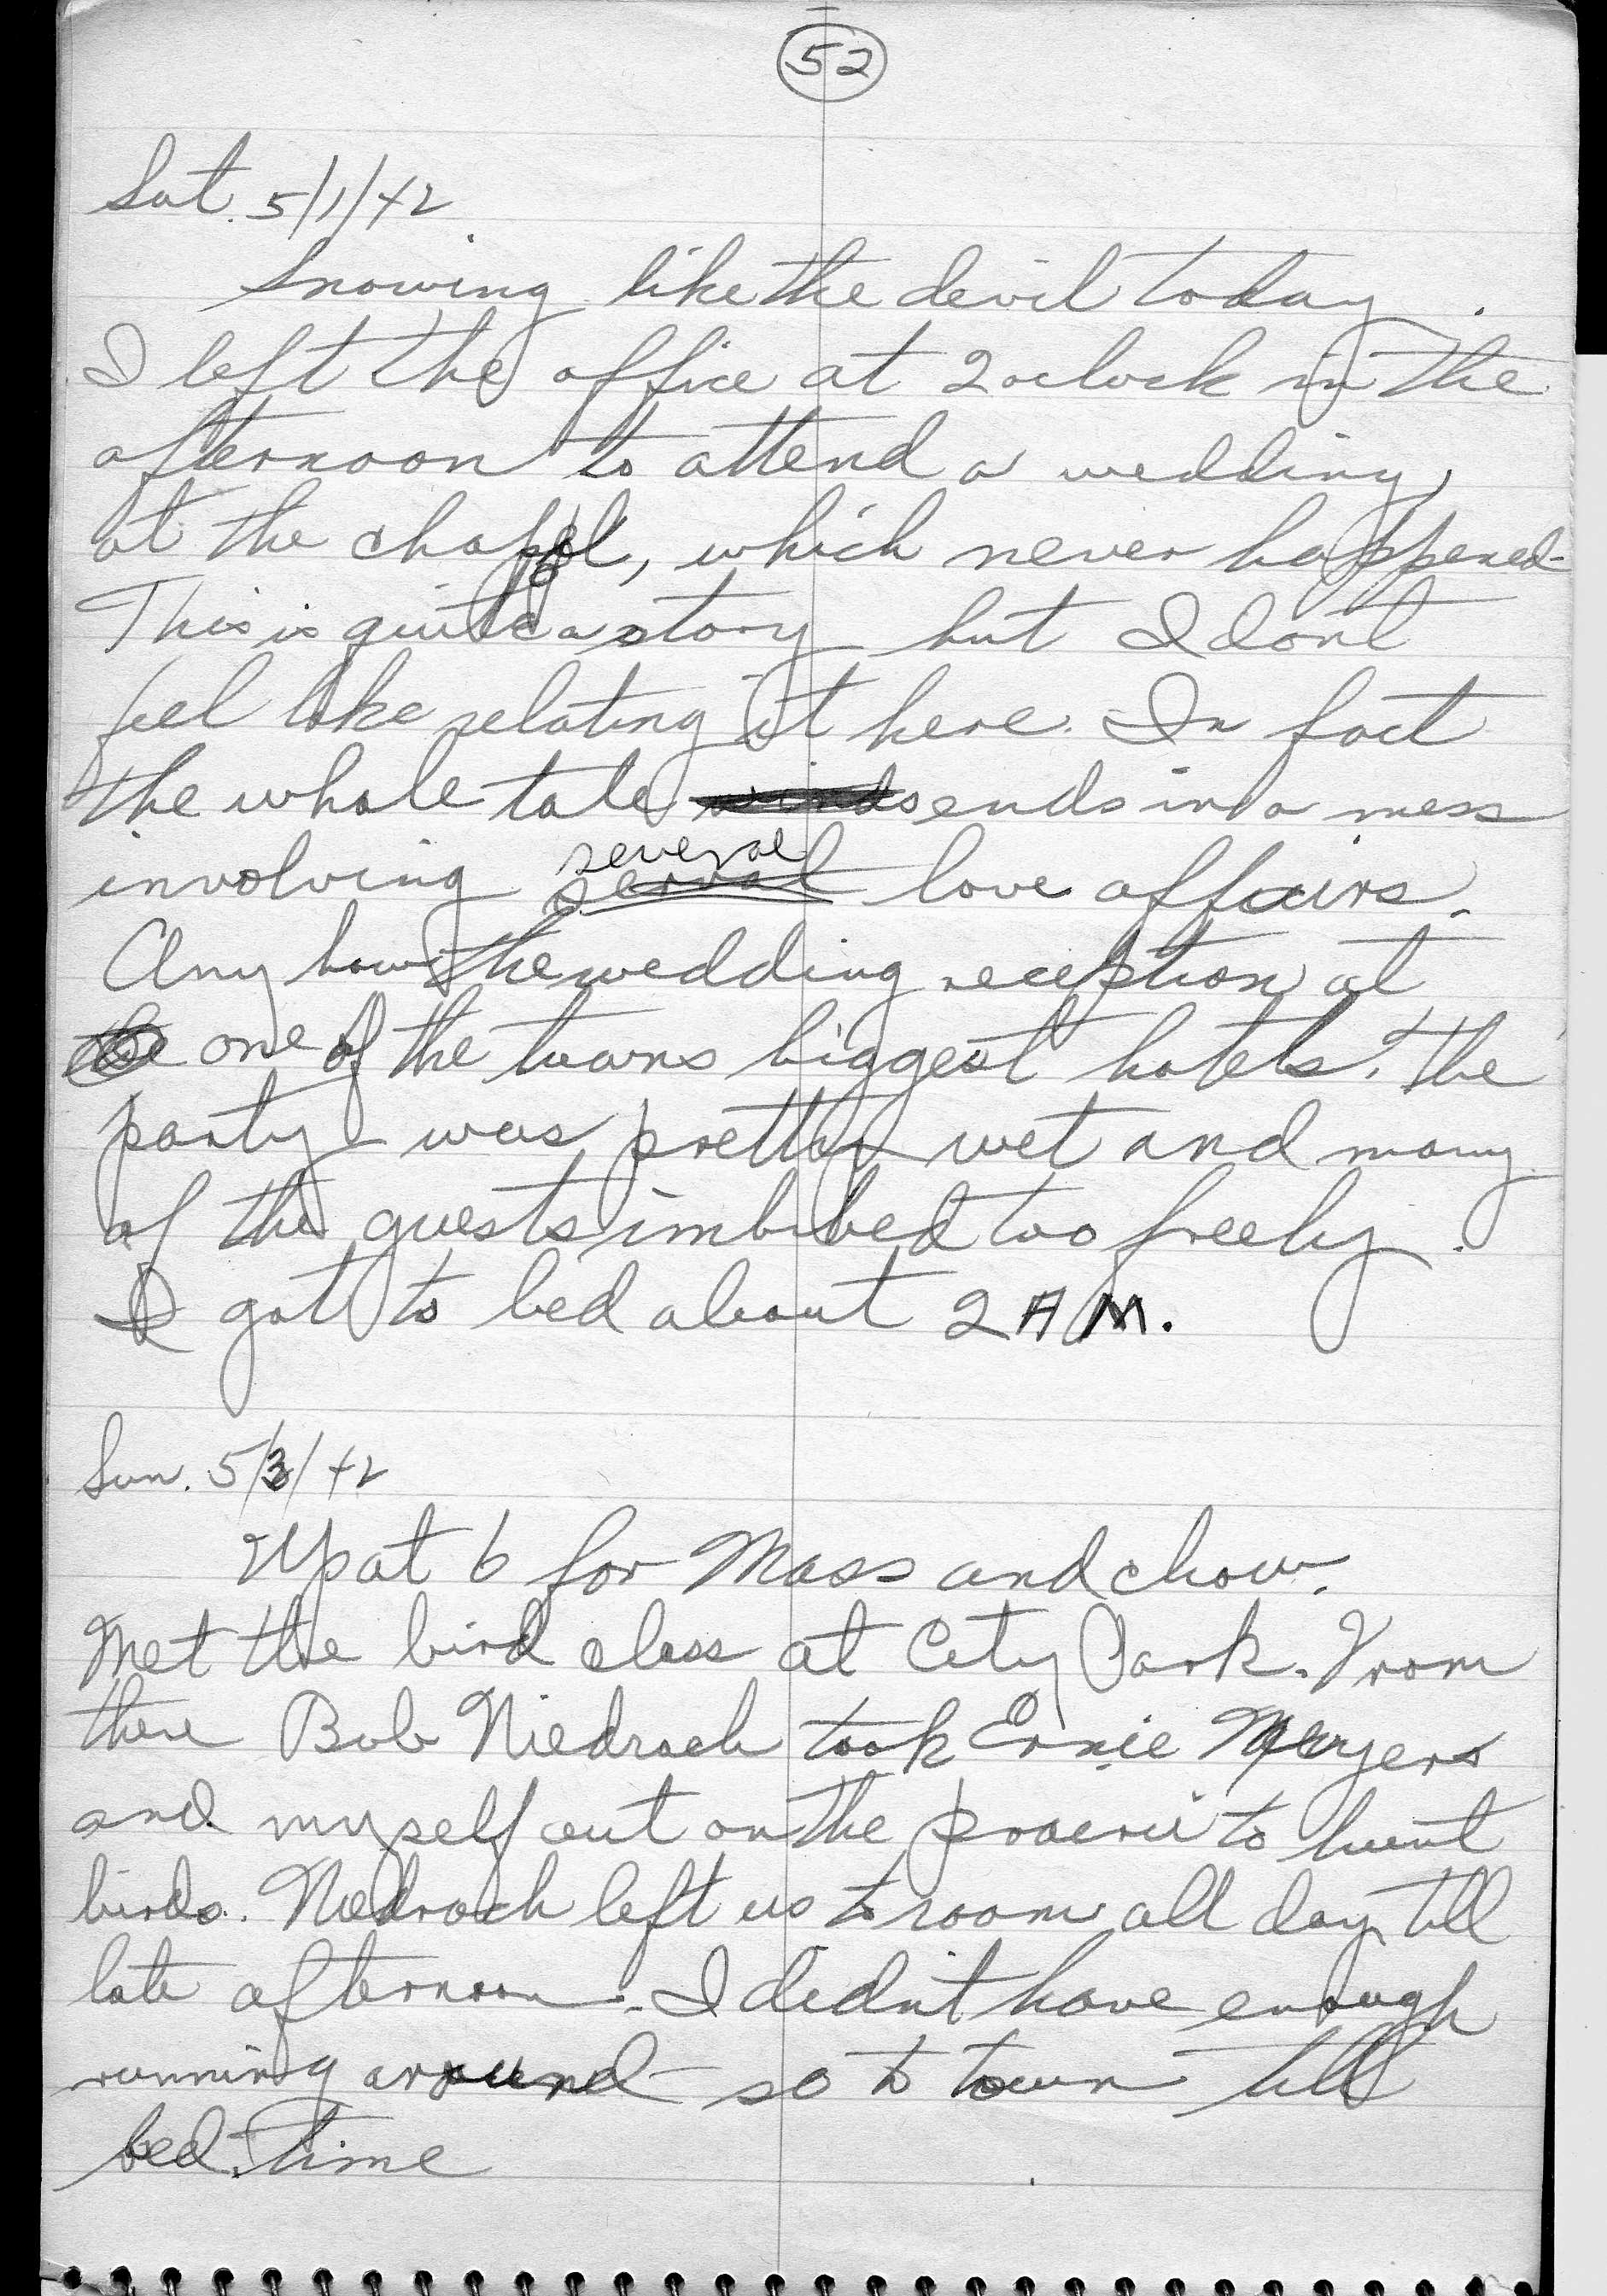 52
Sat. 5/1/42
Snowing like the devil today.
I left the office at 2 oclock in the
afternoon to attend a wedding
at the chapel, which never happened.
This is quite a story but I dont
feel like relating it here. In fact
the whole tale winds ends in a mess
several
involving serval love affairs.
Any how the wedding reception at
the one of the towns biggest hotels. The
party was pretty wet and many
of the guests imbibed too freely.
I got to bed about 2 AM.
Sun. 5/3/42
Up at 6 for Mass and chow.
Met the bird class at City Park. From
there Bob Niedrach took Ernie Meyers
and myself out on the praerie to hunt
birds. Niedrach left us to roam all day till
late afternoon. I didn't have enough
running around so to town till
bed time